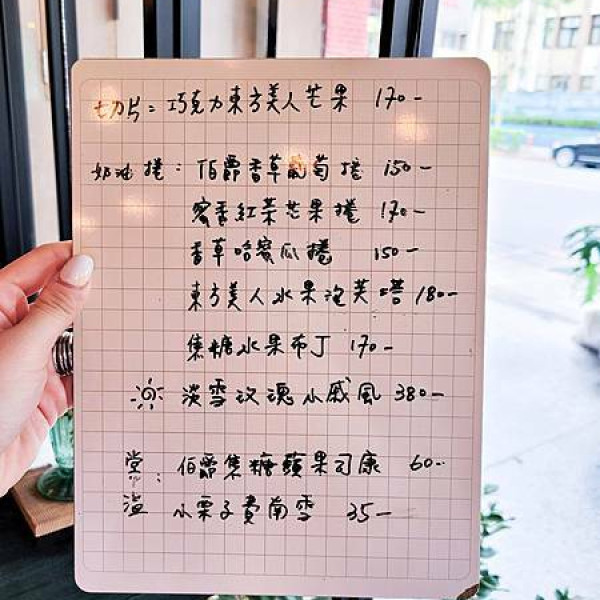 切片：巧克力東方美人芒果 170-
奶油捲：伯爵香草葡萄捲 150-
蜜香紅茶芒果捲 170-
香草哈蜜瓜捲 150-
東方美人水果泡芙塔 180-
焦糖水果布丁 170-
淡雪玫瑰小戚風 380-
常溫：伯爵焦糖蘋果司康 60-
小栗子費南雪 35-